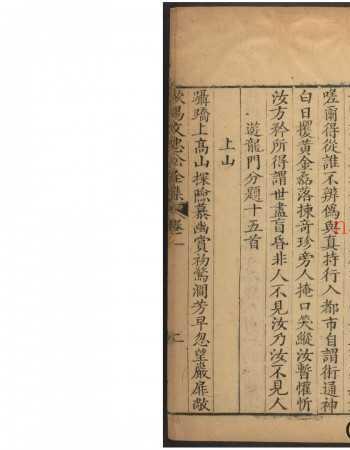 嗟爾得從誰不辨偽與真持行入都市自謂術通神
白日攫黃金磊落揀奇珍旁人掩口笑縱汝暫懽忻
汝方矜所得謂世盡盲昏非人不見汝乃汝不見人
遊龍門分題十五首
上山
躡蹻上高山探險慕幽賞初驚澗芳早忽望巖扉敞
歐陽文忠公全集 卷一